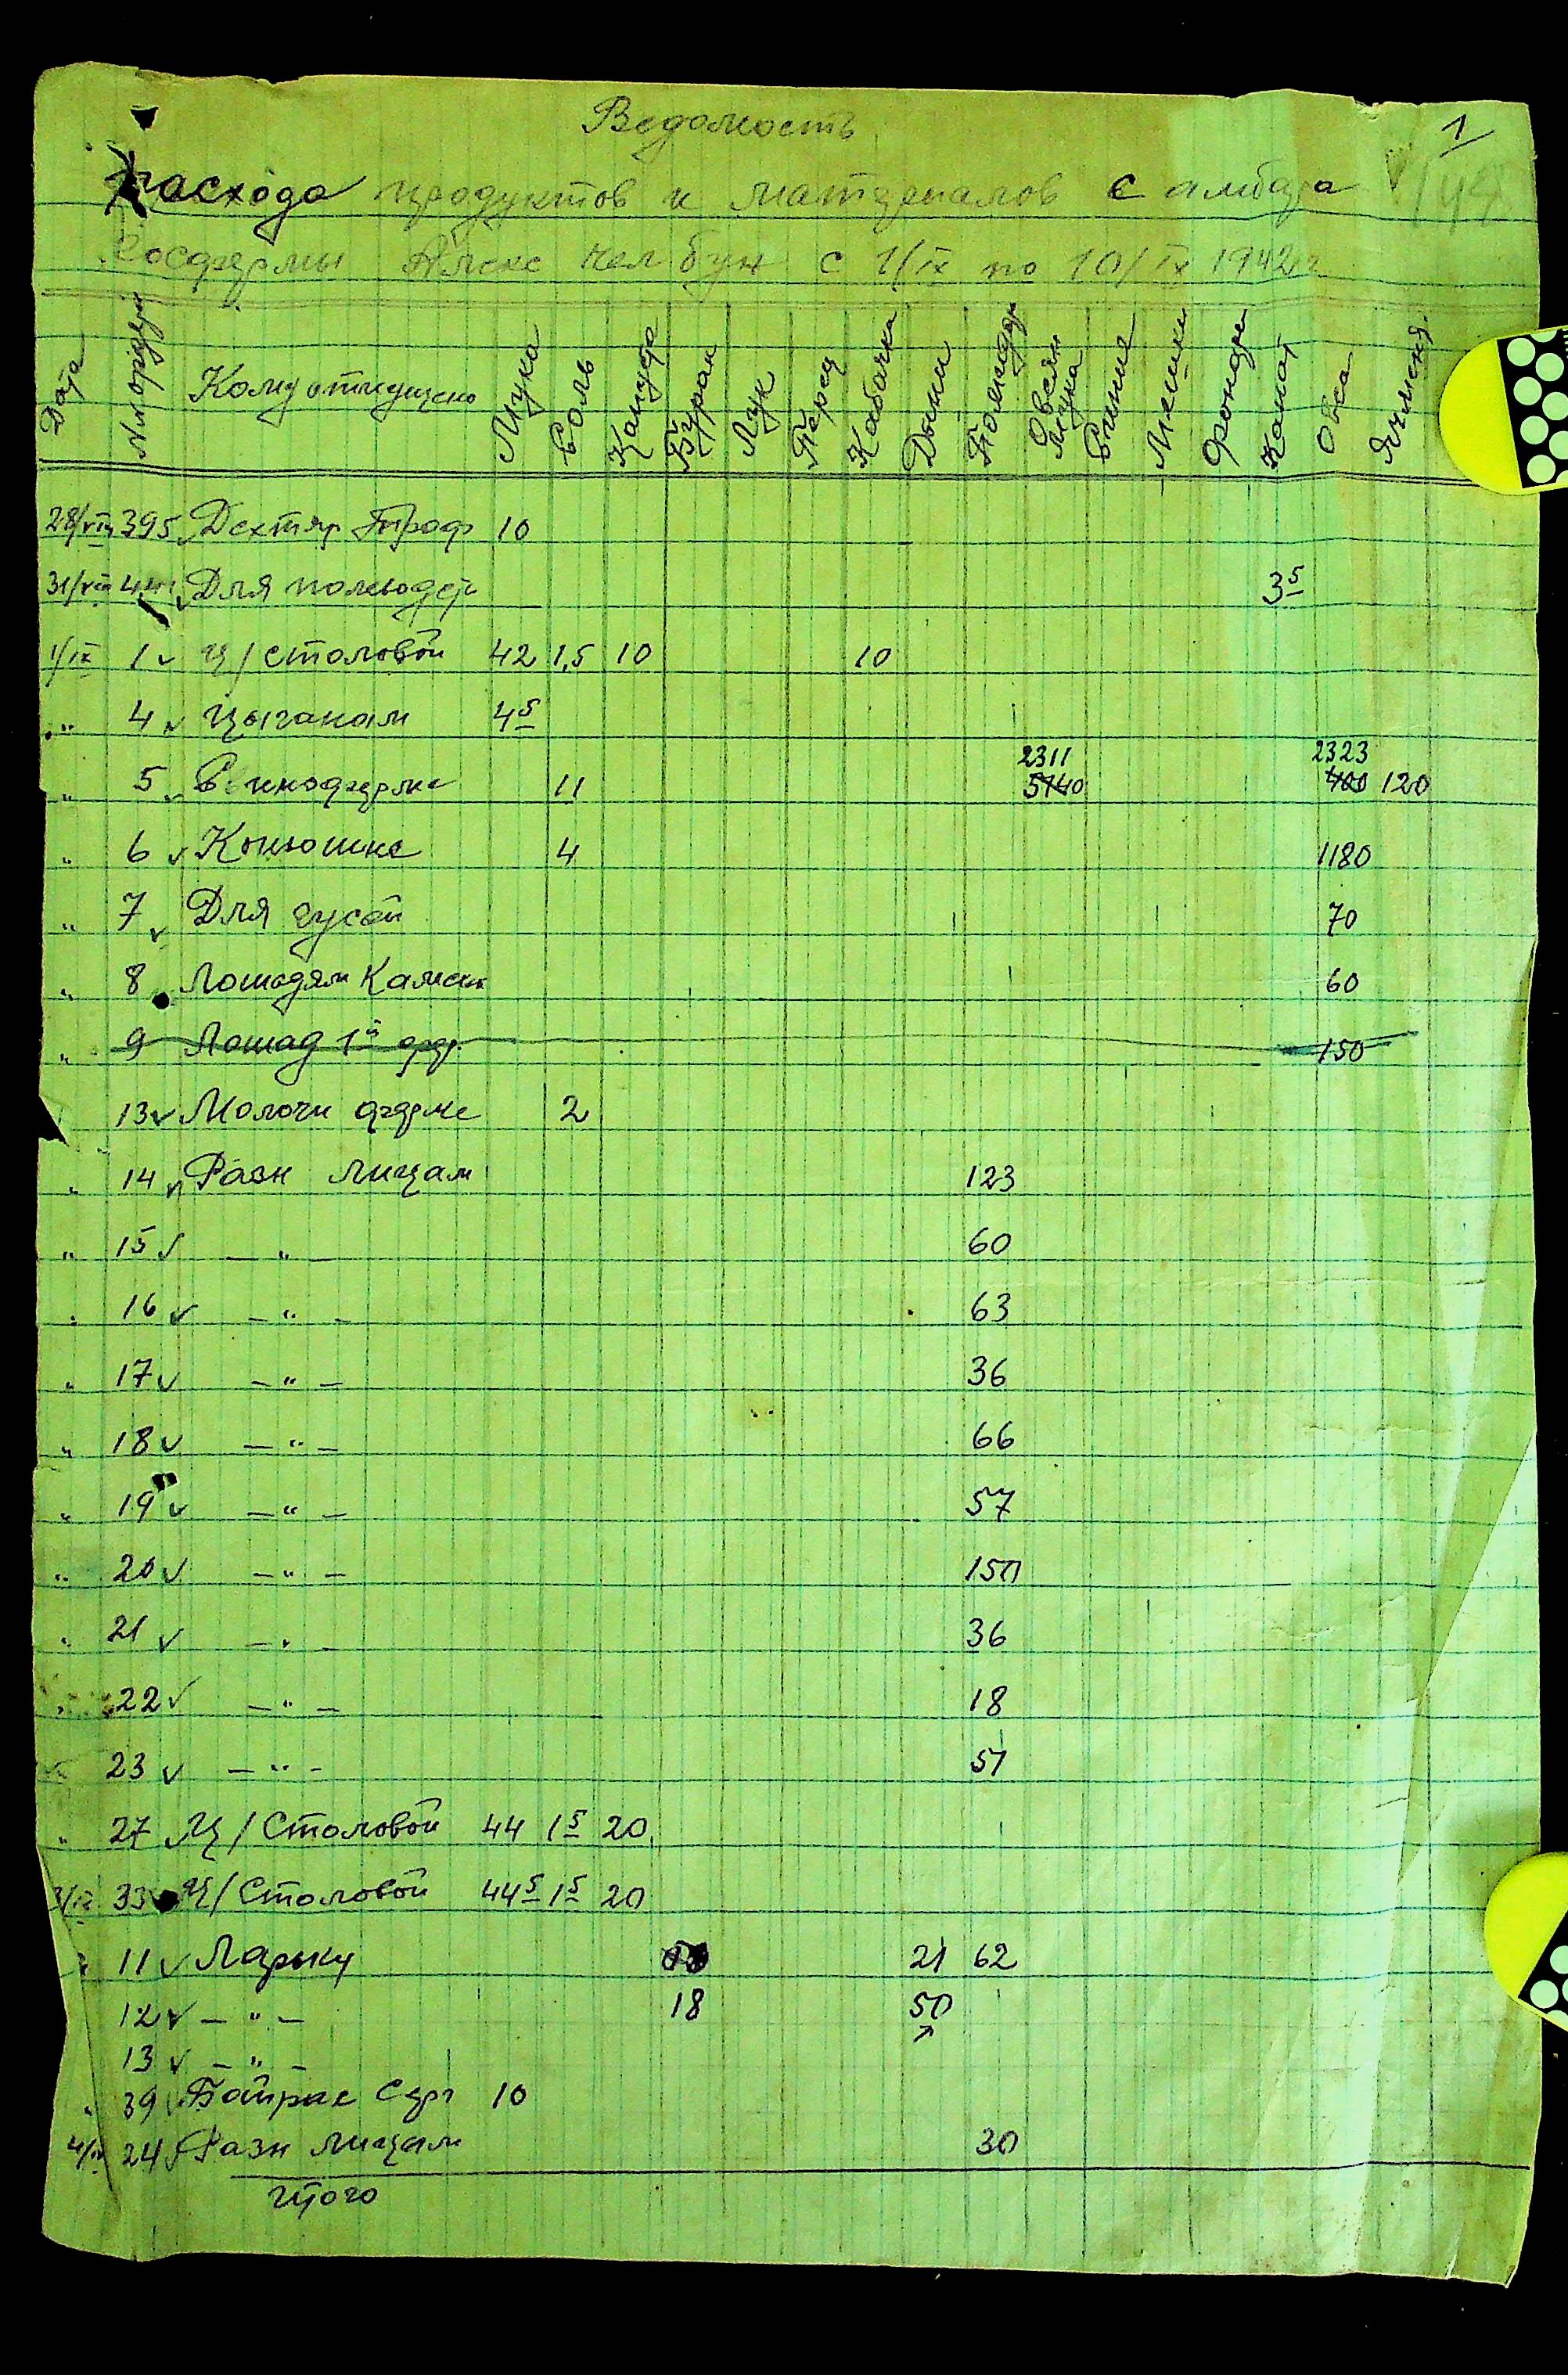 Ведомость
1
расхода продуктов и матерьалов с амбара
Госфермы с 1/IX по 10/IX 1942 г
Дата № ордера Кому отпущено Мука Соль Капуста Бурак Лук Перец Кабачки Дыни Помидор Овсян мука Свиние Мешки Канат Овса Ячменя
28/VIII 395 Дехтяр Троф 10
31/VIII Для 3 5
1/IX 1 Ц/столовой 42 1,5 10 10
" 4 Цыганам 4 5
2311 2323
" 5 Свиноферме 11 5140 400 120
" 6 Конюшне 4 1180
" 7 Для гусей 70
" 8 Лошадям Камен 60
" 9 Лошад 1й фер. 150
13 Молочн ферме 2
" 14 Разн лицам 123
" 15 — " — 60
" 16 — " — 63
" 17 — " — 36
" 18 — " — 66
" 19 — " — 57
" 20 — " — 150
" 21 — " — 36
" 22 — " — 18
" 23 — " — 51
" 27 Ц/Столовой 44 1 5 20
3/IX 33 Ц/Столовой 44 5 1 5 20
" 11 Ларьку 21 62
12 — " — 18 50
13 — " —
" 39 Байрак Серг 10
4/IX 24 Разн лицам 30
Итого